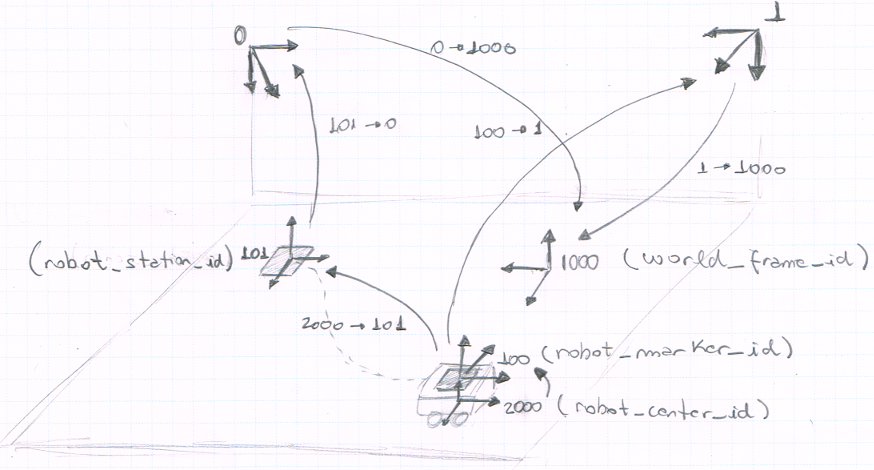 0
1
0→1000
101→0
100→1
1→1000
(robot_station_id) 101
1000 (world_frame_id)
2000→101
100 (robot_marker_id)
2000 (robot_center_id)